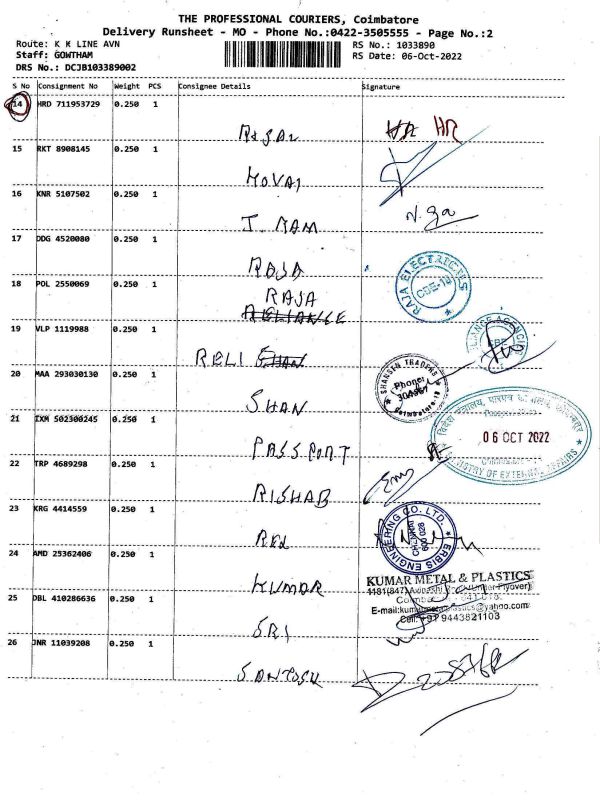 THE PROFESSIONAL COURIERS, Coimbatore
Delivery Runsheet - MO - Phone No.:0422-3505555 - Page No.:2
Route: K K LINE AVN
RS No.: 1033890
Staff: GOWTHAM
RS Date: 06-Oct-2022
DRS No.: DCJB103389002
S No Consignment No Weight PCS Consignee Details Signature
14 HRD 711953729 0.250 1
15 RKT 8908145 0.250 1
KOVAI
16 KNR 5107502 0.250 1
17 DDG 4520080 0.250 1
RAJA
RAJA ELECTRICALS
CBE-18
18 POL 2550069 0.250 1
RAJA
RELIANCE
19 VLP 1119988 0.250 1
RELI SHAN
20 MAA 293030130 0.250 1
SHAN
SHANSEN TRADERS
Phone:
Coimbatore-18
21 IXM 502300245 0.250 1
PASSPORT
06 OCT 2022
MINISTRY OF EXTERNAL AFFAIRS
22 TRP 4689298 0.250 1
RISHAB
23 KRG 4414559 0.250 1
ERBIS ENGINEERING CO. LTD.
CHENNAI
600 028
24 AMD 25362406 0.250 1
KUMAR
KUMAR METAL & PLASTICS
25 DBL 410286636 0.250 1
SRI
Cell: +91 9443821103
26 JNR 11039208 0.250 1
SANTOSH